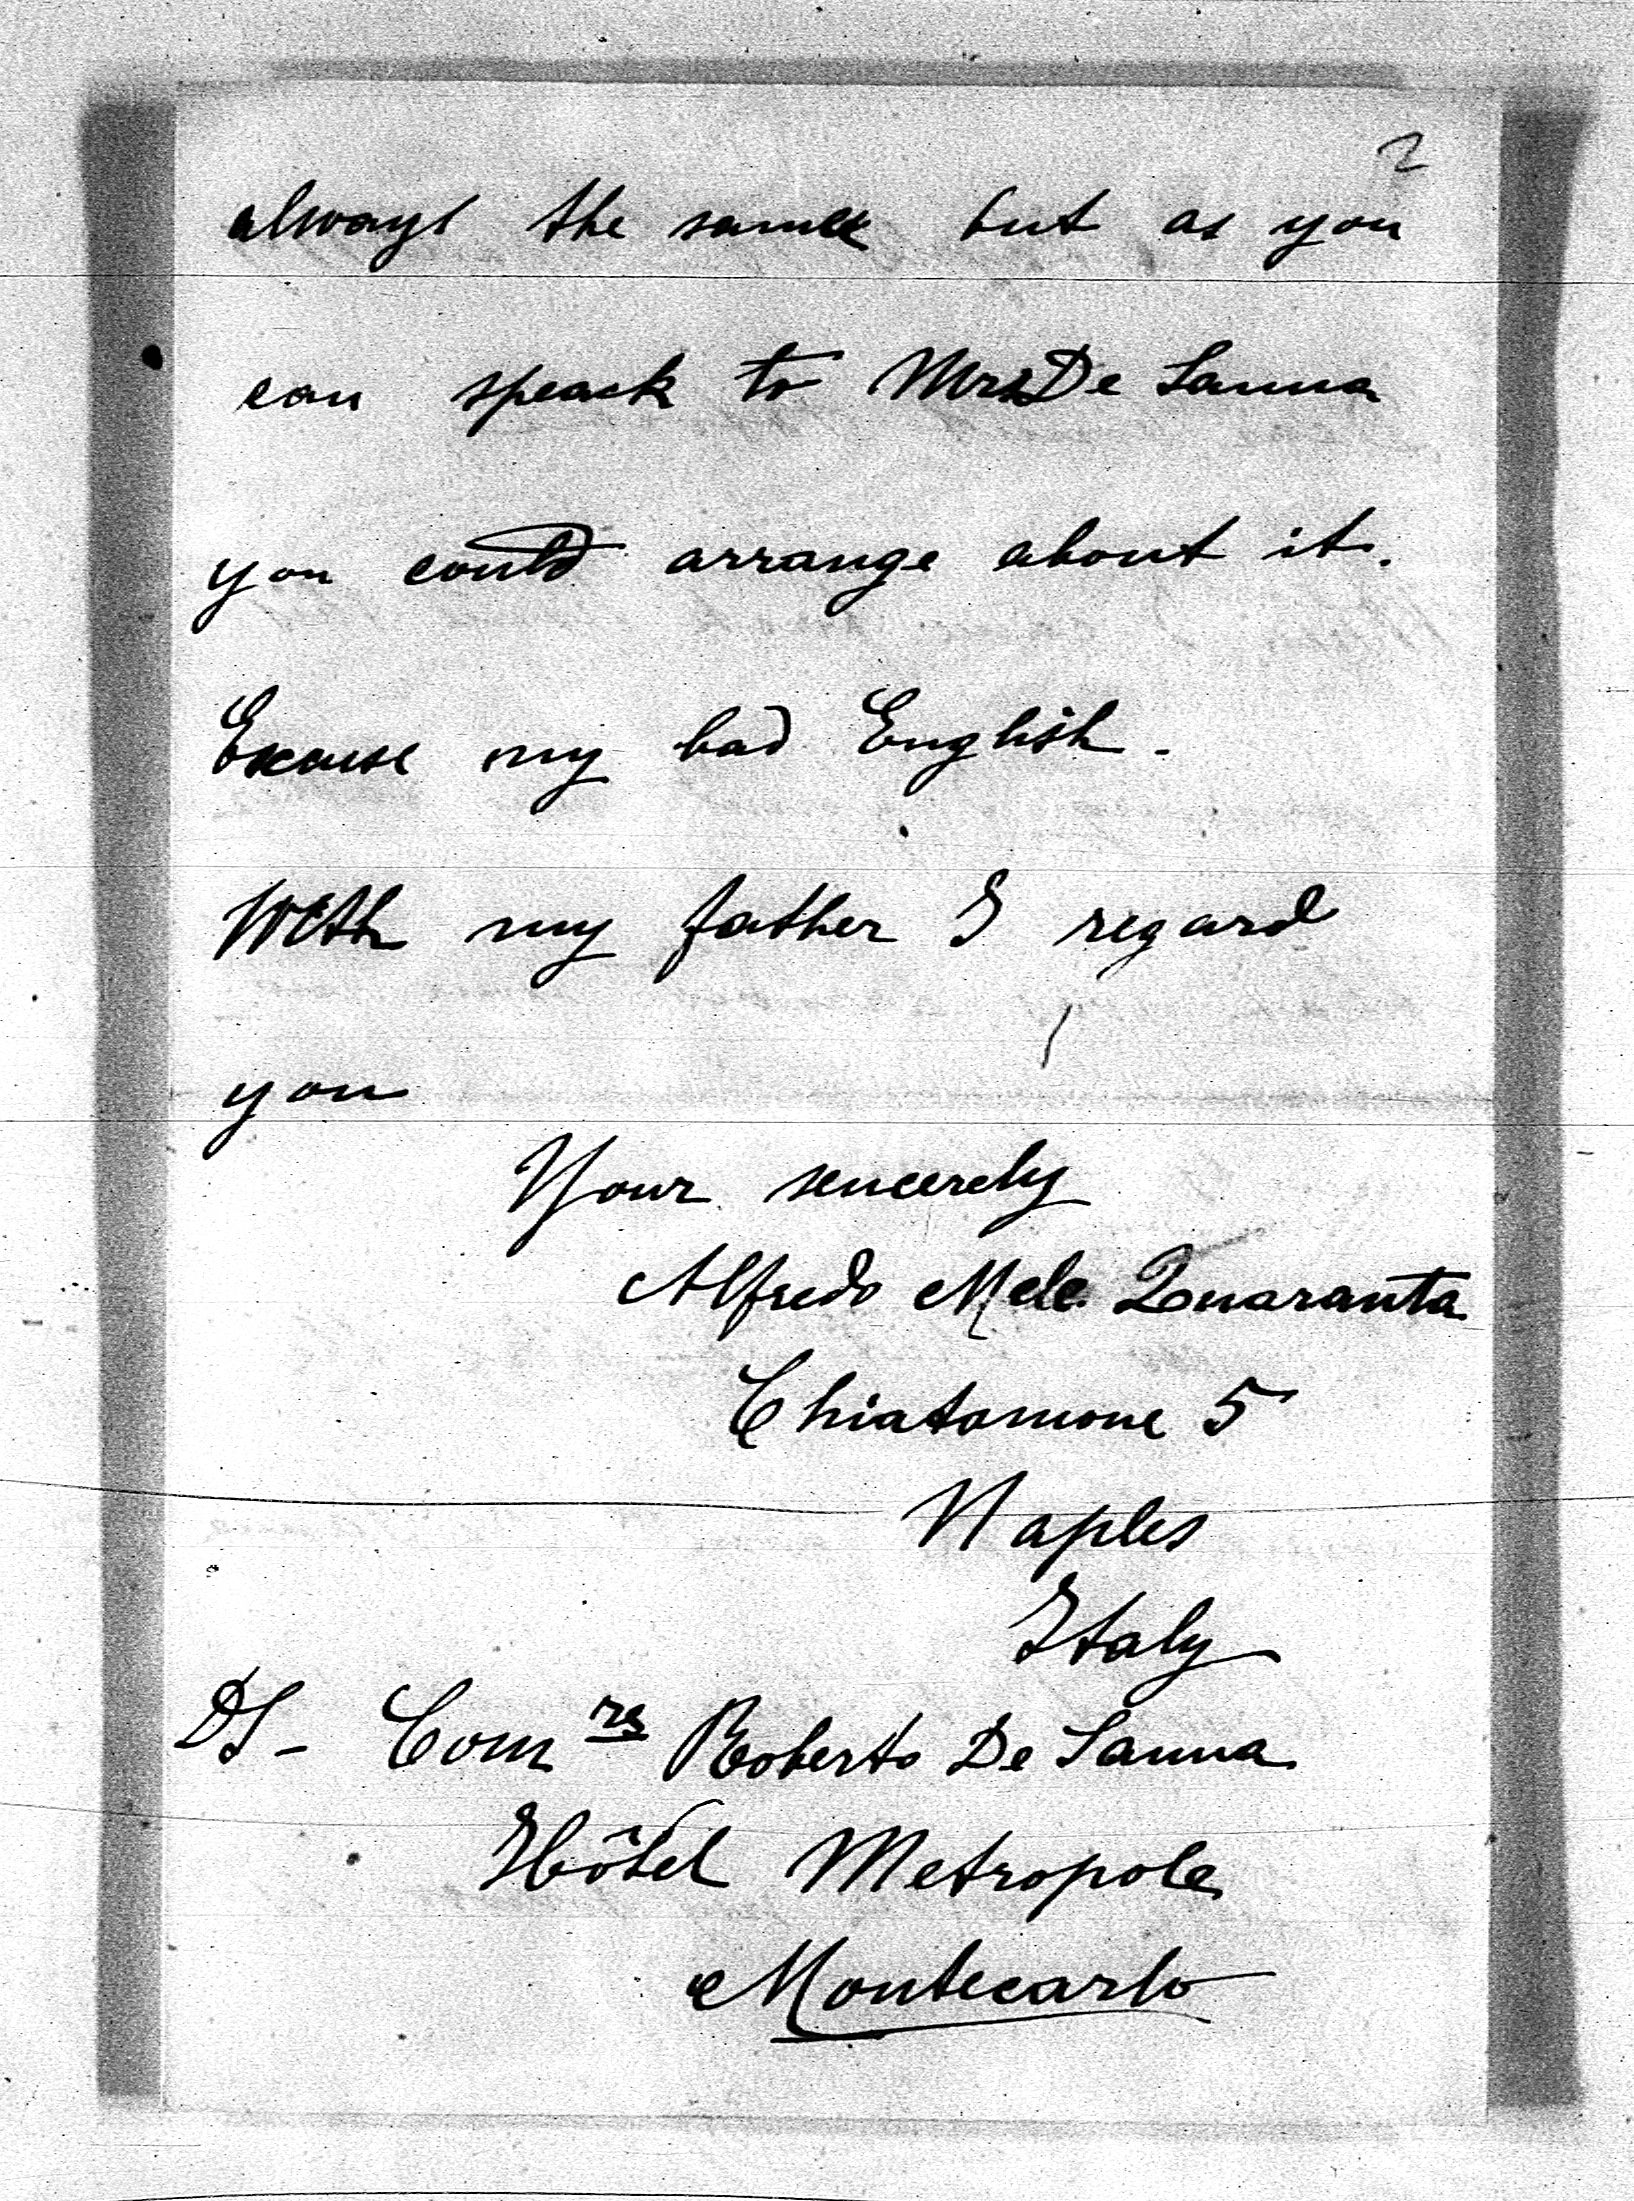 2
always the same but as you
can speack to Mrs De Sanna
you could arrange about it.
Excuse my bad English.
With my father I regard
you
Your sencerely
Alfredo Mele Quaranta
Chiatamone 5
Naples
Italy
PS - Com re Roberto De Sanna
Hôtel Metropole
Montecarlo